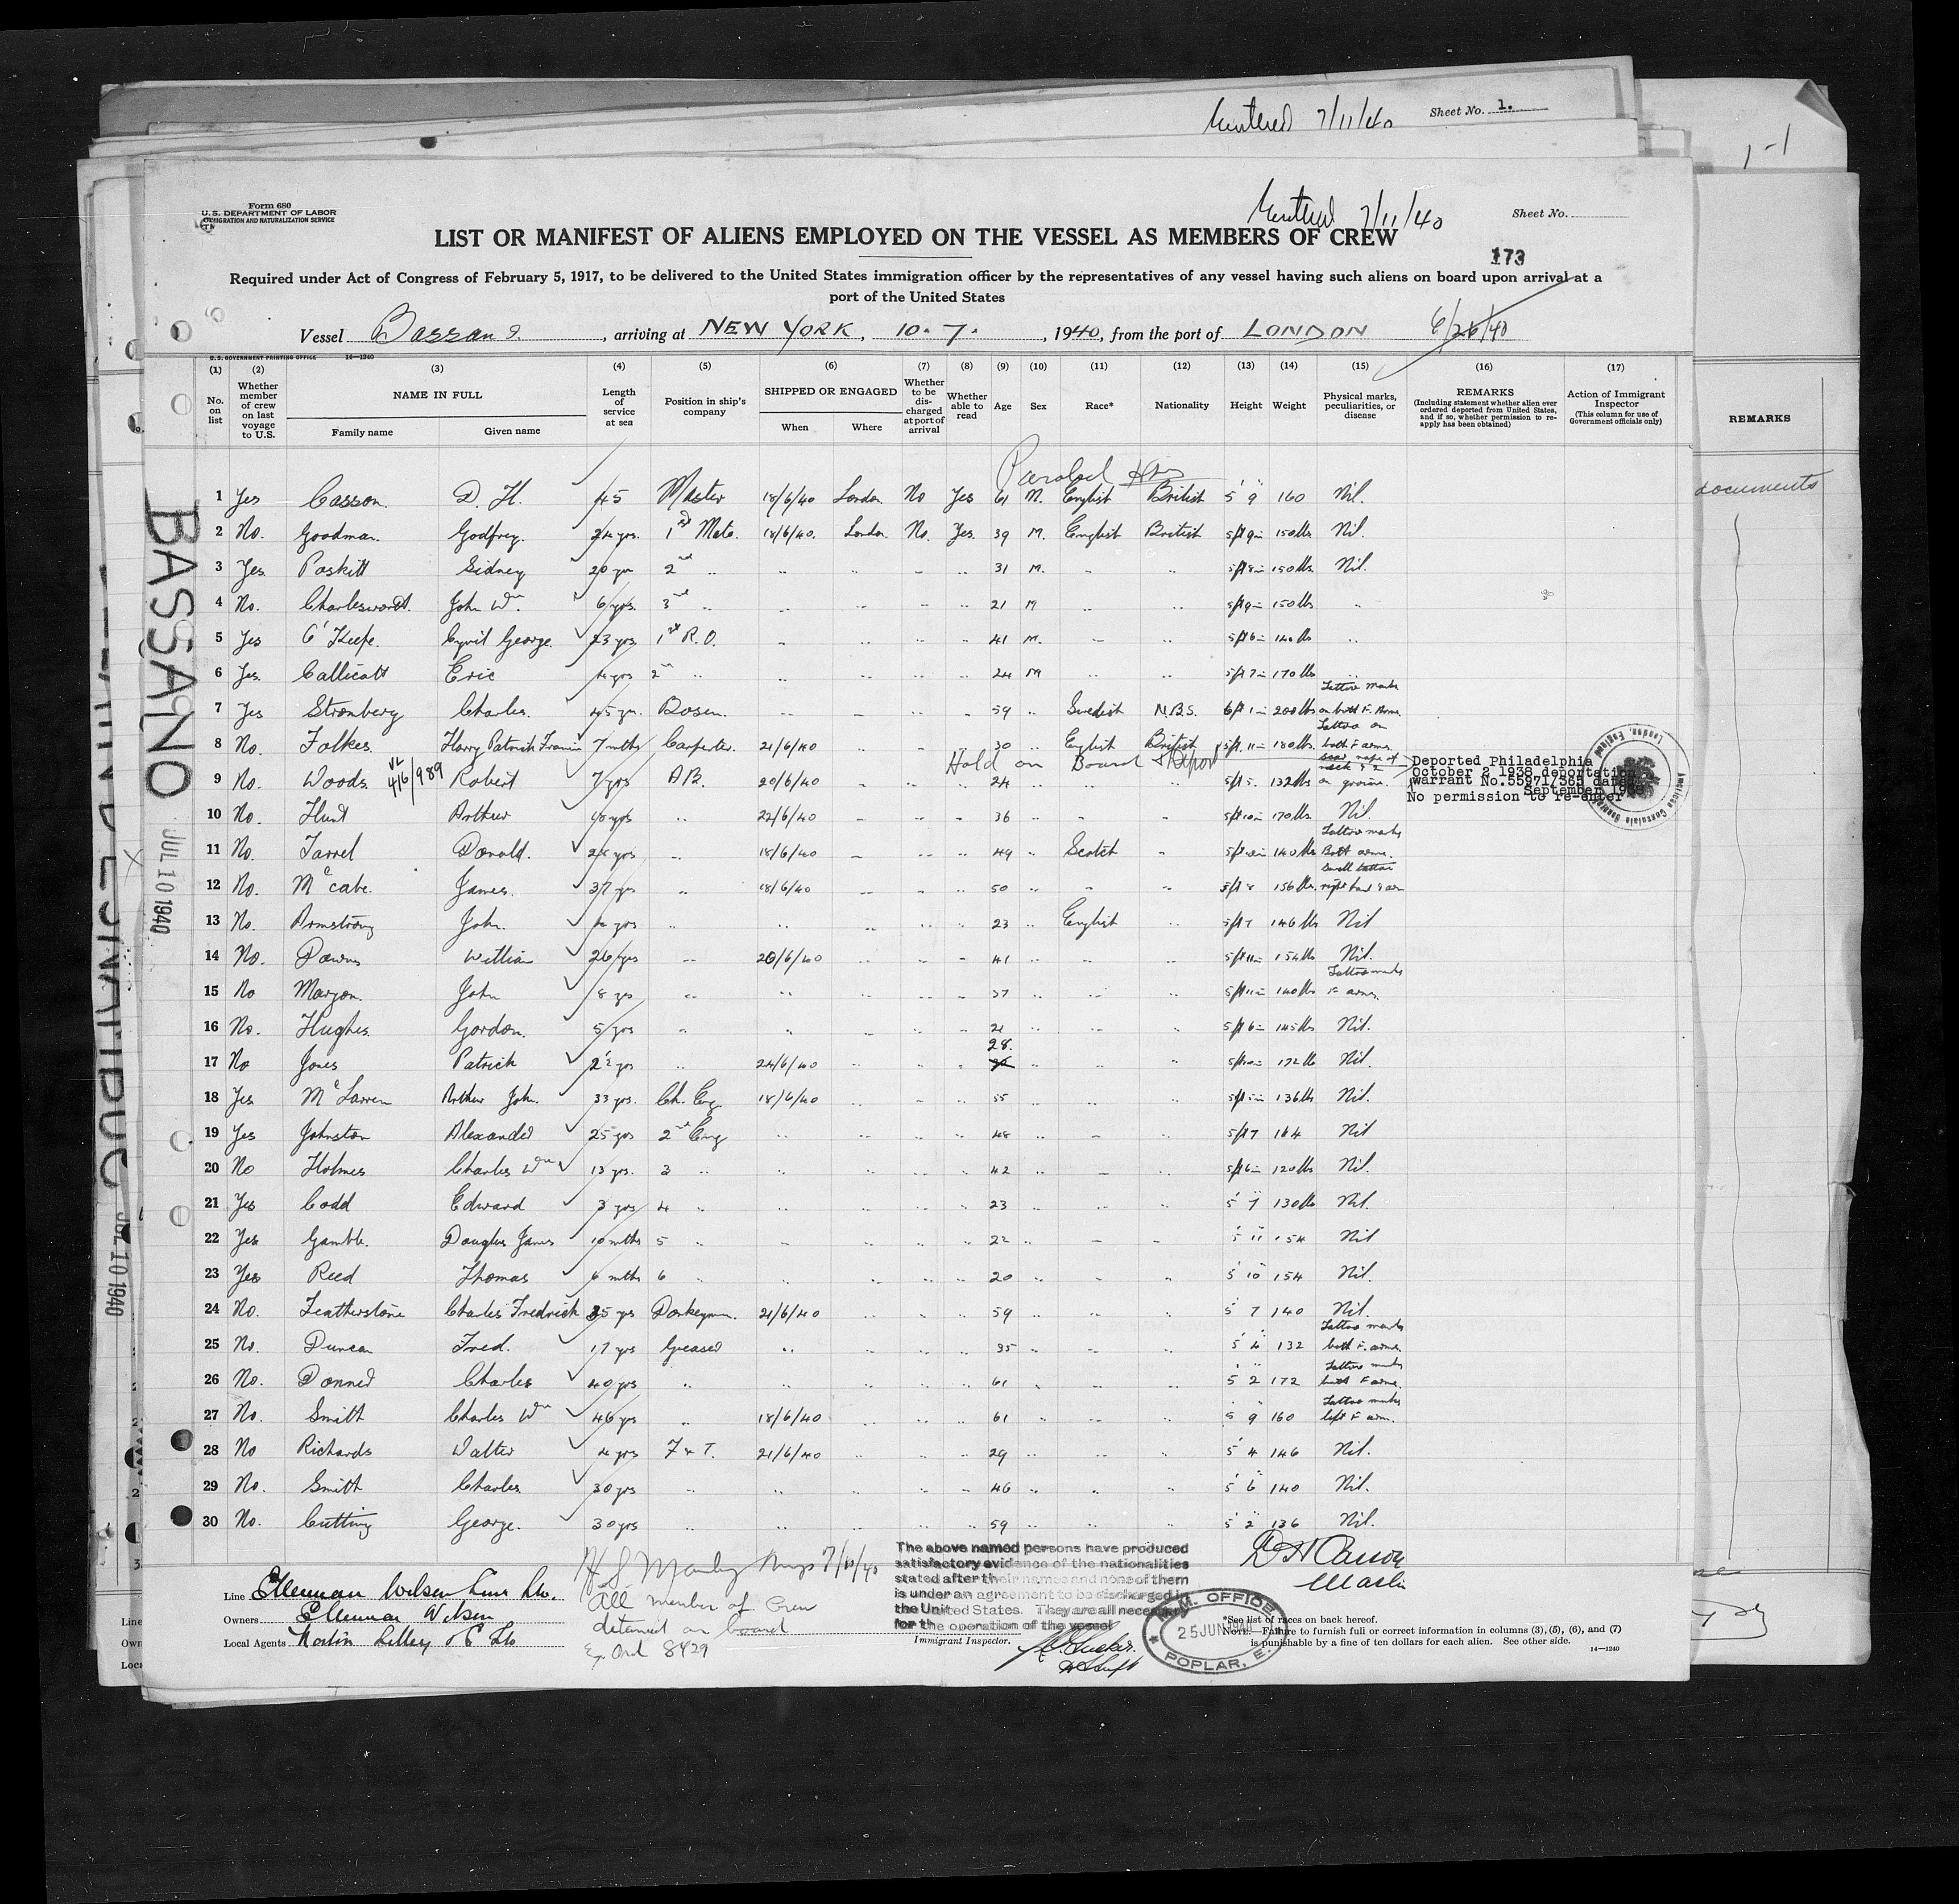 Entered 7/11/40 Sheet No. 1.
1-1
Form 680
U.S. DEPARTMENT OF LABOR
IMMIGRATION AND NATURALIZATION SERVICE
Entered 7/11/40 Sheet No.
LIST OR MANIFEST OF ALIENS EMPLOYED ON THE VESSEL AS MEMBERS OF CREW
173
Required under Act of Congress of February 5, 1917, to be delivered to the United States immigration officer by the representatives of any vessel having such aliens on board upon arrival at a
port of the United States
Vessel Bassano, arriving at NEW YORK, 10. 7., 1940, from the port of LONDON 6/26/40
U.S. GOVERNMENT PRINTING OFFICE 14—1240
(1) (2) (3) (4) (5) (6) (7) (8) (9) (10) (11) (12) (13) (14) (15) (16) (17)
No. on list
Whether member of crew on last voyage to U.S.
NAME IN FULL
Family name Given name
Length of service at sea
Position in ship's company
SHIPPED OR ENGAGED
When Where
Whether to be discharged at port of arrival
Whether able to read
Age
Sex
Race*
Nationality
Height
Weight
Physical marks, peculiarities, or disease
REMARKS
(Including statement whether alien ever ordered deported from United States, and if so, whether permission to reapply has been obtained)
Action of Immigrant Inspector
(This column for use of Government officials only)
REMARKS
documents
BASSANO
JUL 10 1940
JUL 10 1940
1 Yes Casson D. H. 45 Master 18/6/40 London No Yes 61 M. English British 5' 9" 160 Nil.
2 No. Goodman. Godfrey. 24 yrs. 1st Mate. 18/6/40. London No. Yes. 39 M. English British 5ft 9in 150lbs Nil.
3 Yes. Poskitt Sidney 20 yrs 2nd " " " " " 31 M. " " 5ft 8in 150lbs Nil.
4 No. Charlesworth. John Wm 6 yrs. 3rd " " " " " 21 M " " 5ft 9in 150lbs "
5 Yes O'Keefe. Cyril George. 23 yrs 1st R.O. " " " " 41 M. " " 5ft 6in 140lb "
6 Yes. Callicott Eric 4 yrs 2nd " " " " " 24 M " " 5ft 7in 170lbs "
7 Yes Stromberg Charles. 45 yrs. Bosun. " " " " 59 " Swedish N.B.S. 6ft 1in 200lbs Tattoo marks on both F. Arms.
8 No. Folkes. Harry Patrick Francis 7 mths Carpenter. 21/6/40 " " " 30 " English British 5ft. 11in 180lbs. Tattoo on both F arms.
Hold on Board & Report
9 No. Woods. Robert 7 yrs A.B. 20/6/40 " " " 24 " " " 5ft 5. 132lbs on groin.
Deported Philadelphia
October 2 1938 deportation
warrant No.55971/365 dated
September 1938
No permission to re-enter
10 No. Hunt Arthur " 22/6/40 " " " 36 " " " 5ft 10in 170lbs. Nil.
11 No. Farrel Donald. 24 yrs " 18/6/40 " " " 49 " Scotch " 140lbs Tattoo marks Both arms.
12 No. McCabe. James. 37 yrs " 18/6/40 " " " 50 " " " 5ft 8 156lbs. Small tattoo right hand & arm
13 No. Armstrong John. 4 yrs " " " " " 23 " English " 5ft 7 146lbs Nil
14 No. Downs William 26 yrs " 20/6/40 " " " 41 " " " 5ft 11in 154lbs Nil.
15 No Marzon. John 8 yrs " " " " " 37 " " " 5ft 11in 140lbs Tattoo marks F arms.
16 No. Hughes. Gordon. 5 yrs " " " " " 21 " " " 5ft 6in 145lbs Nil.
17 No Jones Patrick 2½ yrs " 24/6/40 " " " 28. " " 5ft10in 172lb Nil.
18 Yes McLarren Arthur John. 33 yrs. Ch. Eng. 18/6/40 " " " 55 " " " 136lbs Nil.
19 Yes Johnston Alexander 25 yrs 2nd Eng " " " " 48 " " " 5ft 7 164 Nil
20 No Holmes Charles Wm 13 yrs. 3 " " " " " 42 " " " 5ft 6in 120lbs Nil.
21 Yes Codd Edward 3 yrs 4 " " " " " 23 " " " 5' 7" 130lb Nil.
22 Yes Gamble. Douglas James 10 mths 5 " " " " " 22 " " " 5' 11" 154 Nil
23 Yes Reed Thomas 6 mths 6 " " " " " 20 " " " 5' 10" 154 Nil.
24 No. Featherstone Charles Fredrick 35 yrs Donkeyman. 21/6/40 " " " 59 " " " 5' 7 140 Nil.
25 No. Duncan Fred. 17 yrs Greaser " " " " 35 " " " 5' 4" 132 Tattoo marks both F. arms.
26 No. Donned Charles 40 yrs " " " " " 61 " " " 5' 2" 172 Tattoo marks both F arms.
27 No. Smith Charles Wm 46 yrs " 18/6/40 " " " 61 " " " 5 9 160 Tattoo marks left F arm.
28 No Richards Walter 4 yrs F & T. 21/6/40 " " " 29 " " " 5' 4" 146 Nil.
29 No. Smith Charles 30 yrs " " " " " 46 " " " 5' 6" 140 Nil.
30 No. Cutting George. 30 yrs " " " " " 59 " " " 5' 2" 136 Nil.
D H Casson
Master
7/10/40
Line Ellerman Wilson Line Ltd.
Owners Ellerman Wilson
Local Agents
All member of Crew
detained on board
Ex Ord 8429
The above named persons have produced
satisfactory evidence of the nationalities
stated after their names and none of them
is under an agreement to be discharged in
the United States. They are all necessary
for the operation of the vessel
Immigrant Inspector.
M.M. OFFICE
25 JUN 1940
POPLAR, E.
*See list of races on back hereof.
NOTE.—Failure to furnish full or correct information in columns (3), (5), (6), and (7)
is punishable by a fine of ten dollars for each alien. See other side.
14—1240